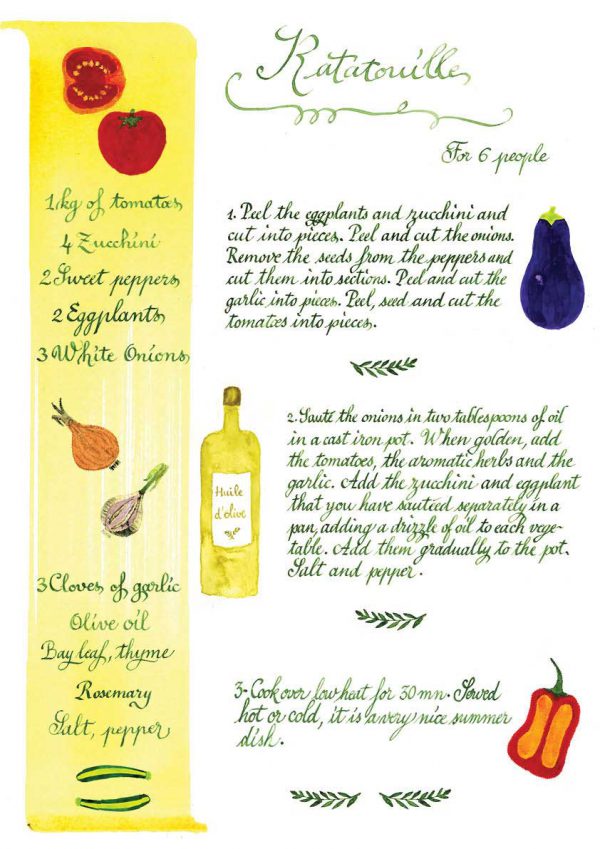 Ratatouille
For 6 people
1 kg of tomatoes
4 Zucchini
2 Sweet peppers
2 Eggplants
3 White Onions
3 Cloves of garlic
Olive oil
Bay leaf, thyme
Rosemary
Salt, pepper
1. Peel the eggplants and zucchini and
cut into pieces. Peel and cut the onions.
Remove the seeds from the peppers and
cut them into sections. Peel and cut the
garlic into pieces. Peel, seed and cut the
tomatoes into pieces.
Huile
d'olive
2. Sauté the onions in two tablespoons of oil
in a cast iron pot. When golden, add
the tomatoes, the aromatic herbs and the
garlic. Add the zucchini and eggplant
that you have sauteed separately in a
pan, adding a drizzle of oil to each vege-
table. Add them gradually to the pot.
Salt and pepper.
3- Cook over low heat for 30 mn. Served
hot or cold, it is a very nice summer
dish.